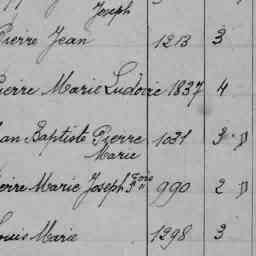 Joseph
Pierre Jean 1213 3
Pierre Marie Ludovic 1837 4
Jean Baptiste Pierre 1031 3 "
Marie
Pierre Marie Joseph 990 2 "
Louis Marie 1298 3